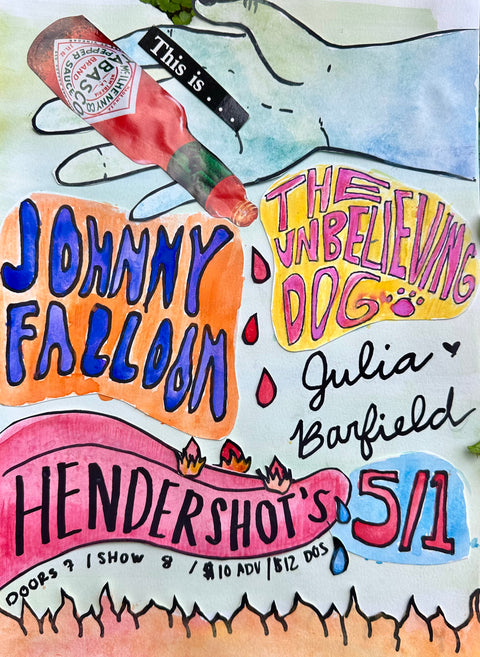 This is . . .
McILHENNY CO
TABASCO
BRAND
PEPPER SAUCE
JOHNNY
FALLOON
THE
UNBELIEVING
DOG
Julia
Barfield
HENDERSHOT'S
5/1
DOORS 7 / SHOW 8 / $10 ADV / $12 DOS